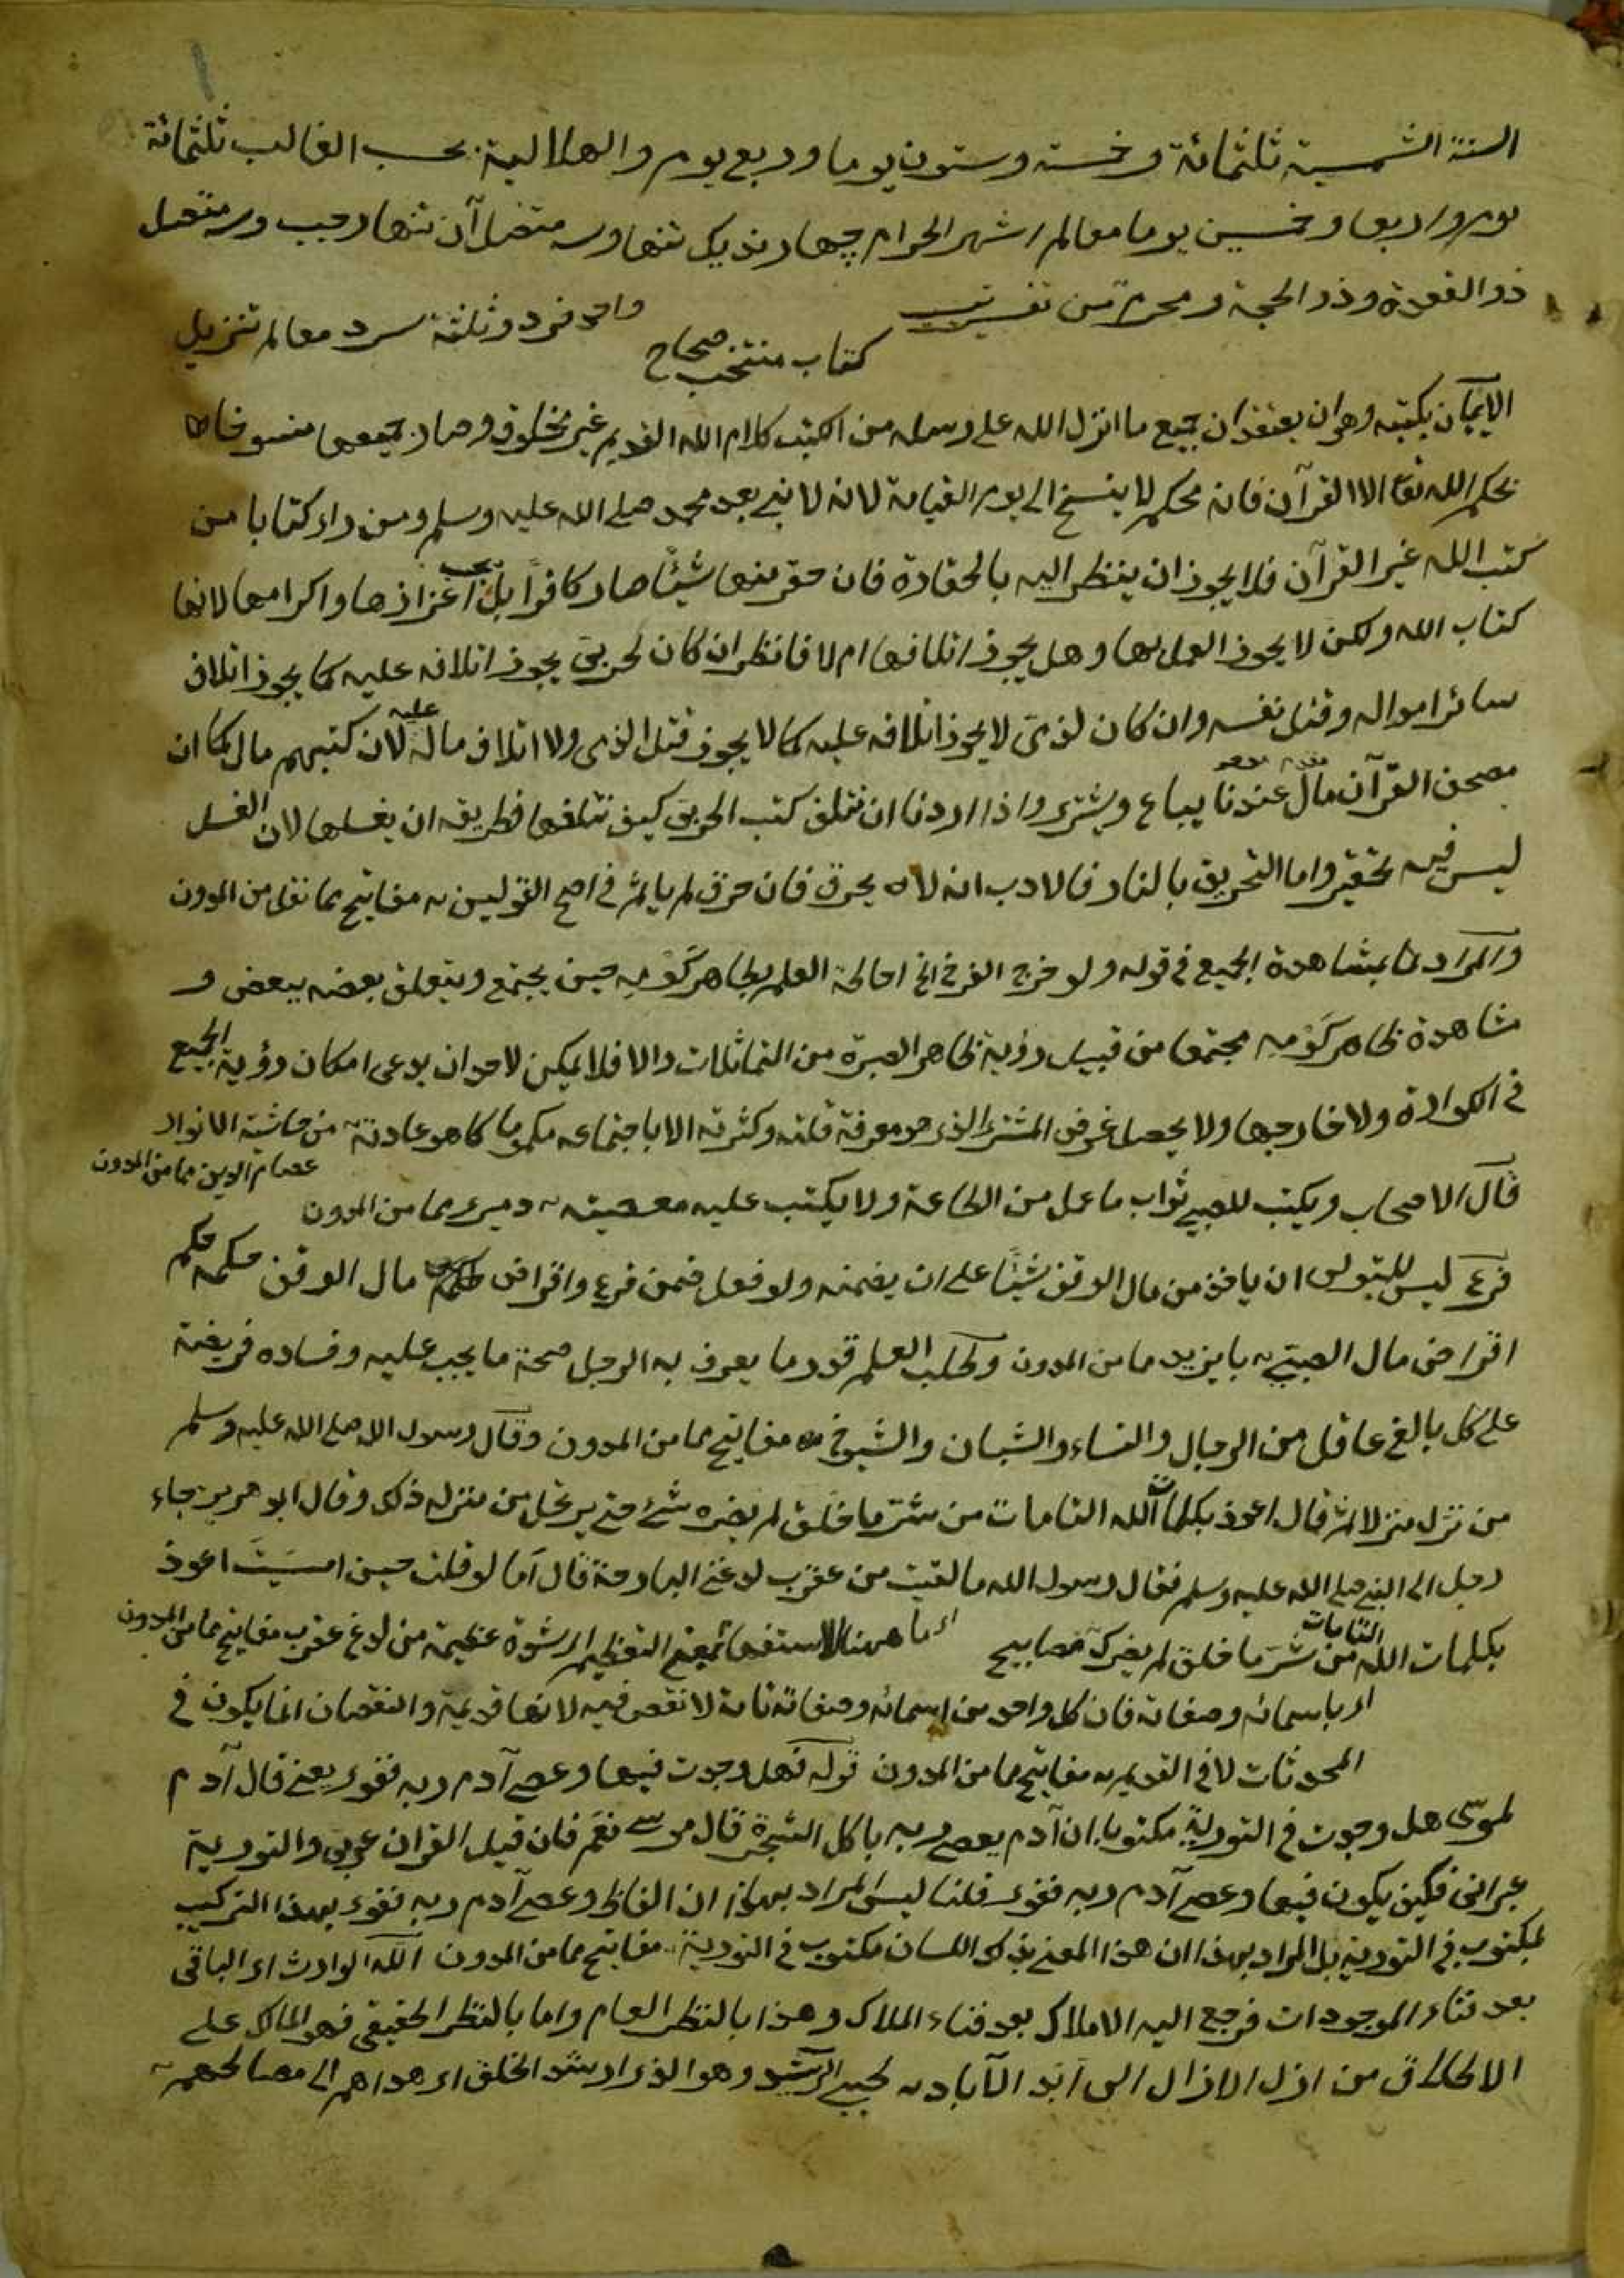 السنة الشمسية ثلثمائة وخمسة وستون يوما وربع يوم والهلالية بحسب الغالب ثلثمائة
يوم واربعا وخمسين يوما معالم اشهر الحرام چهارند يك تنها وسه متصل آن تنها رجب وسه متصل
ذو القعدة وذو الحجة ومحرم من
واحد فرد وثلثة سرد معالم تنزيل
كتاب منتخب صحاح
الايمان بكتبه وهو ان يعتقد ان جميع ما انزل الله على رسله من الكتب كلام الله القديم غير مخلوق وصار جميعها منسوخا
بحكم الله تعا الا القرآن فانه محكم لا ينسخ الى يوم القيامة لانه لا نبي بعد محمد صلى الله عليه وسلم ومن راى كتابا من
كتب الله غير القرآن فلا يجوز ان ينظر اليه بالحقارة فان حقر منها شيئا صار كافرا بل يجب اعزازها واكرامها لانها
كتاب الله ولكن لا يجوز العمل بها وهل يجوز اتلافها ام لا فانظر ان كان لحربي يجوز اتلافه عليه كما يجوز اتلاف
سائر امواله وقتل نفسه وان كان لذمي لا يجوز اتلافه عليه كما لا يجوز قتل الذمي ولا اتلاف ماله عليه لان كتبهم مال كما ان
مصحف القرآن مال عندنا يباع ويشترى واذا اردنا ان نتلف كتب الحربي كيف نتلفها فطريقه ان يغسلها لان الغسل
ليس فيه تحقير واما التحريق بالنار فالادب انه لا يحرق فان حرق لم ياثم في اصح القولين مفاتيح مما نقل من المدون
والمراد بمشاهدة الجميع في قوله ولو خرج الفرخ الخ احالة العلم بظاهر كومه حين يجتمع ويتعلق بعضه ببعض و
مشاهدة ظاهر كومه مجتمعا من قبيل رؤية ظاهر الصبرة من التماثلات والا فلا يمكن لاحد ان يدعى امكان رؤية الجميع
في الكوارة ولا خارجها ولا يحصل غرض المشترى الذى هو معرفة قلته وكثرته الا باجتماعه مكموما كما هو عادته من حاشية الانوار
عصام الدين مما من المدون
قال الاصحاب ويكتب للصبي ثواب ما عمل من الطاعة ولا يكتب عليه معصيته دميرى مما من المدون
فرع ليس للمتولى ان ياخذ من مال الوقف شيئا على ان يضمنه ولو فعل ضمن فرع واقراض مال الوقف حكمه حكم
اقراض مال الصبي بايزيد مما من المدون وطلب العلم قدر ما يعرف به الرجل صحة ما يجب عليه وفساده فريضة
على كل بالغ عاقل من الرجال والنساء والشبان والشيوخ مفاتيح مما من المدون وقال رسول الله صلى الله عليه وسلم
من نزل منزلا ثم قال اعوذ بكلمات الله التامات من شر ما خلق لم يضره شئ حتى يرتحل من منزله ذلك وقال ابو هريرة جاء
رجل الى النبي صلى الله عليه وسلم فقال رسول الله ما لقيت من عقرب لدغني البارحة قال اما لو قلت حين امسيت اعوذ
بكلمات الله التامات من شر ما خلق لم يضرك مصابيح
اى ما ههنا للاستفهام بمعنى التعظيم اى شدة عظيمة من لدغ عقرب مفاتيح مما من المدون
اى باسمائه وصفاته فان كل واحد من اسمائه وصفاته تامة لا نقص فيه لانها قديمة والنقصان انما يكون في
المحدثات لا في القديم مفاتيح مما من المدون قوله فهل وجدت فيها وعصى آدم ربه فغوى يعني قال آدم
لموسى هل وجدت في التورية مكتوبا ان آدم يعصى ربه باكل الشجرة قال موسى نعم فان قيل القران عربي والتورية
عبراني فكيف يكون فيها وعصى آدم ربه فغوى قلنا ليس المراد بهذا ان الفاظ وعصى آدم ربه فغوى بهذا التركيب
مكتوب في التورية بل المراد بهذا ان هذا المعنى بذلك اللسان مكتوب في التورية مفاتيح مما من المدون الله الوارث اى الباقى
بعد فناء الموجودات فرجع اليه الاملاك بعد فناء الملاك وهذا بالنظر العام واما بالنظر الحقيقي فهو المالك على
الاطلاق من ازل الازال الى ابد الآباد الرشيد وهو الذى ارشد الخلق اى هداهم الى مصالحهم